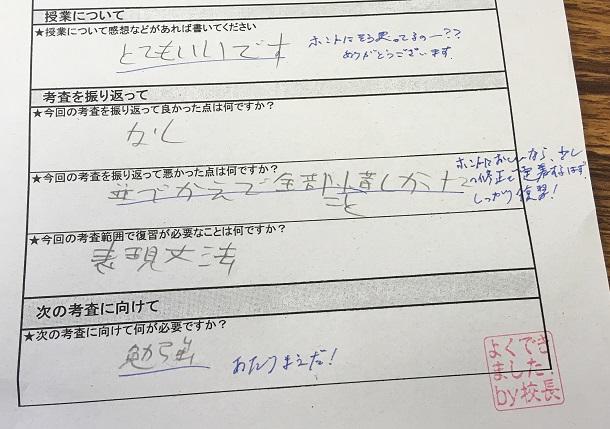 授業について
★授業について感想などがあれば書いてください
とてもいいです
ホントにそう思ってるのー??
ありがとうございます.
考査を振り返って
★今回の考査を振り返って良かった点は何ですか？
なし
★今回の考査を振り返って悪かった点は何ですか？
全部
こと
ホントにおしいなら、少し
の修正で定着するはず.
しっかり復習!
★今回の考査範囲で復習が必要なことは何ですか？
表現文法
次の考査に向けて
★次の考査に向けて何が必要ですか？
勉強
あたりまえだ!
よくでき
ました!
by校長